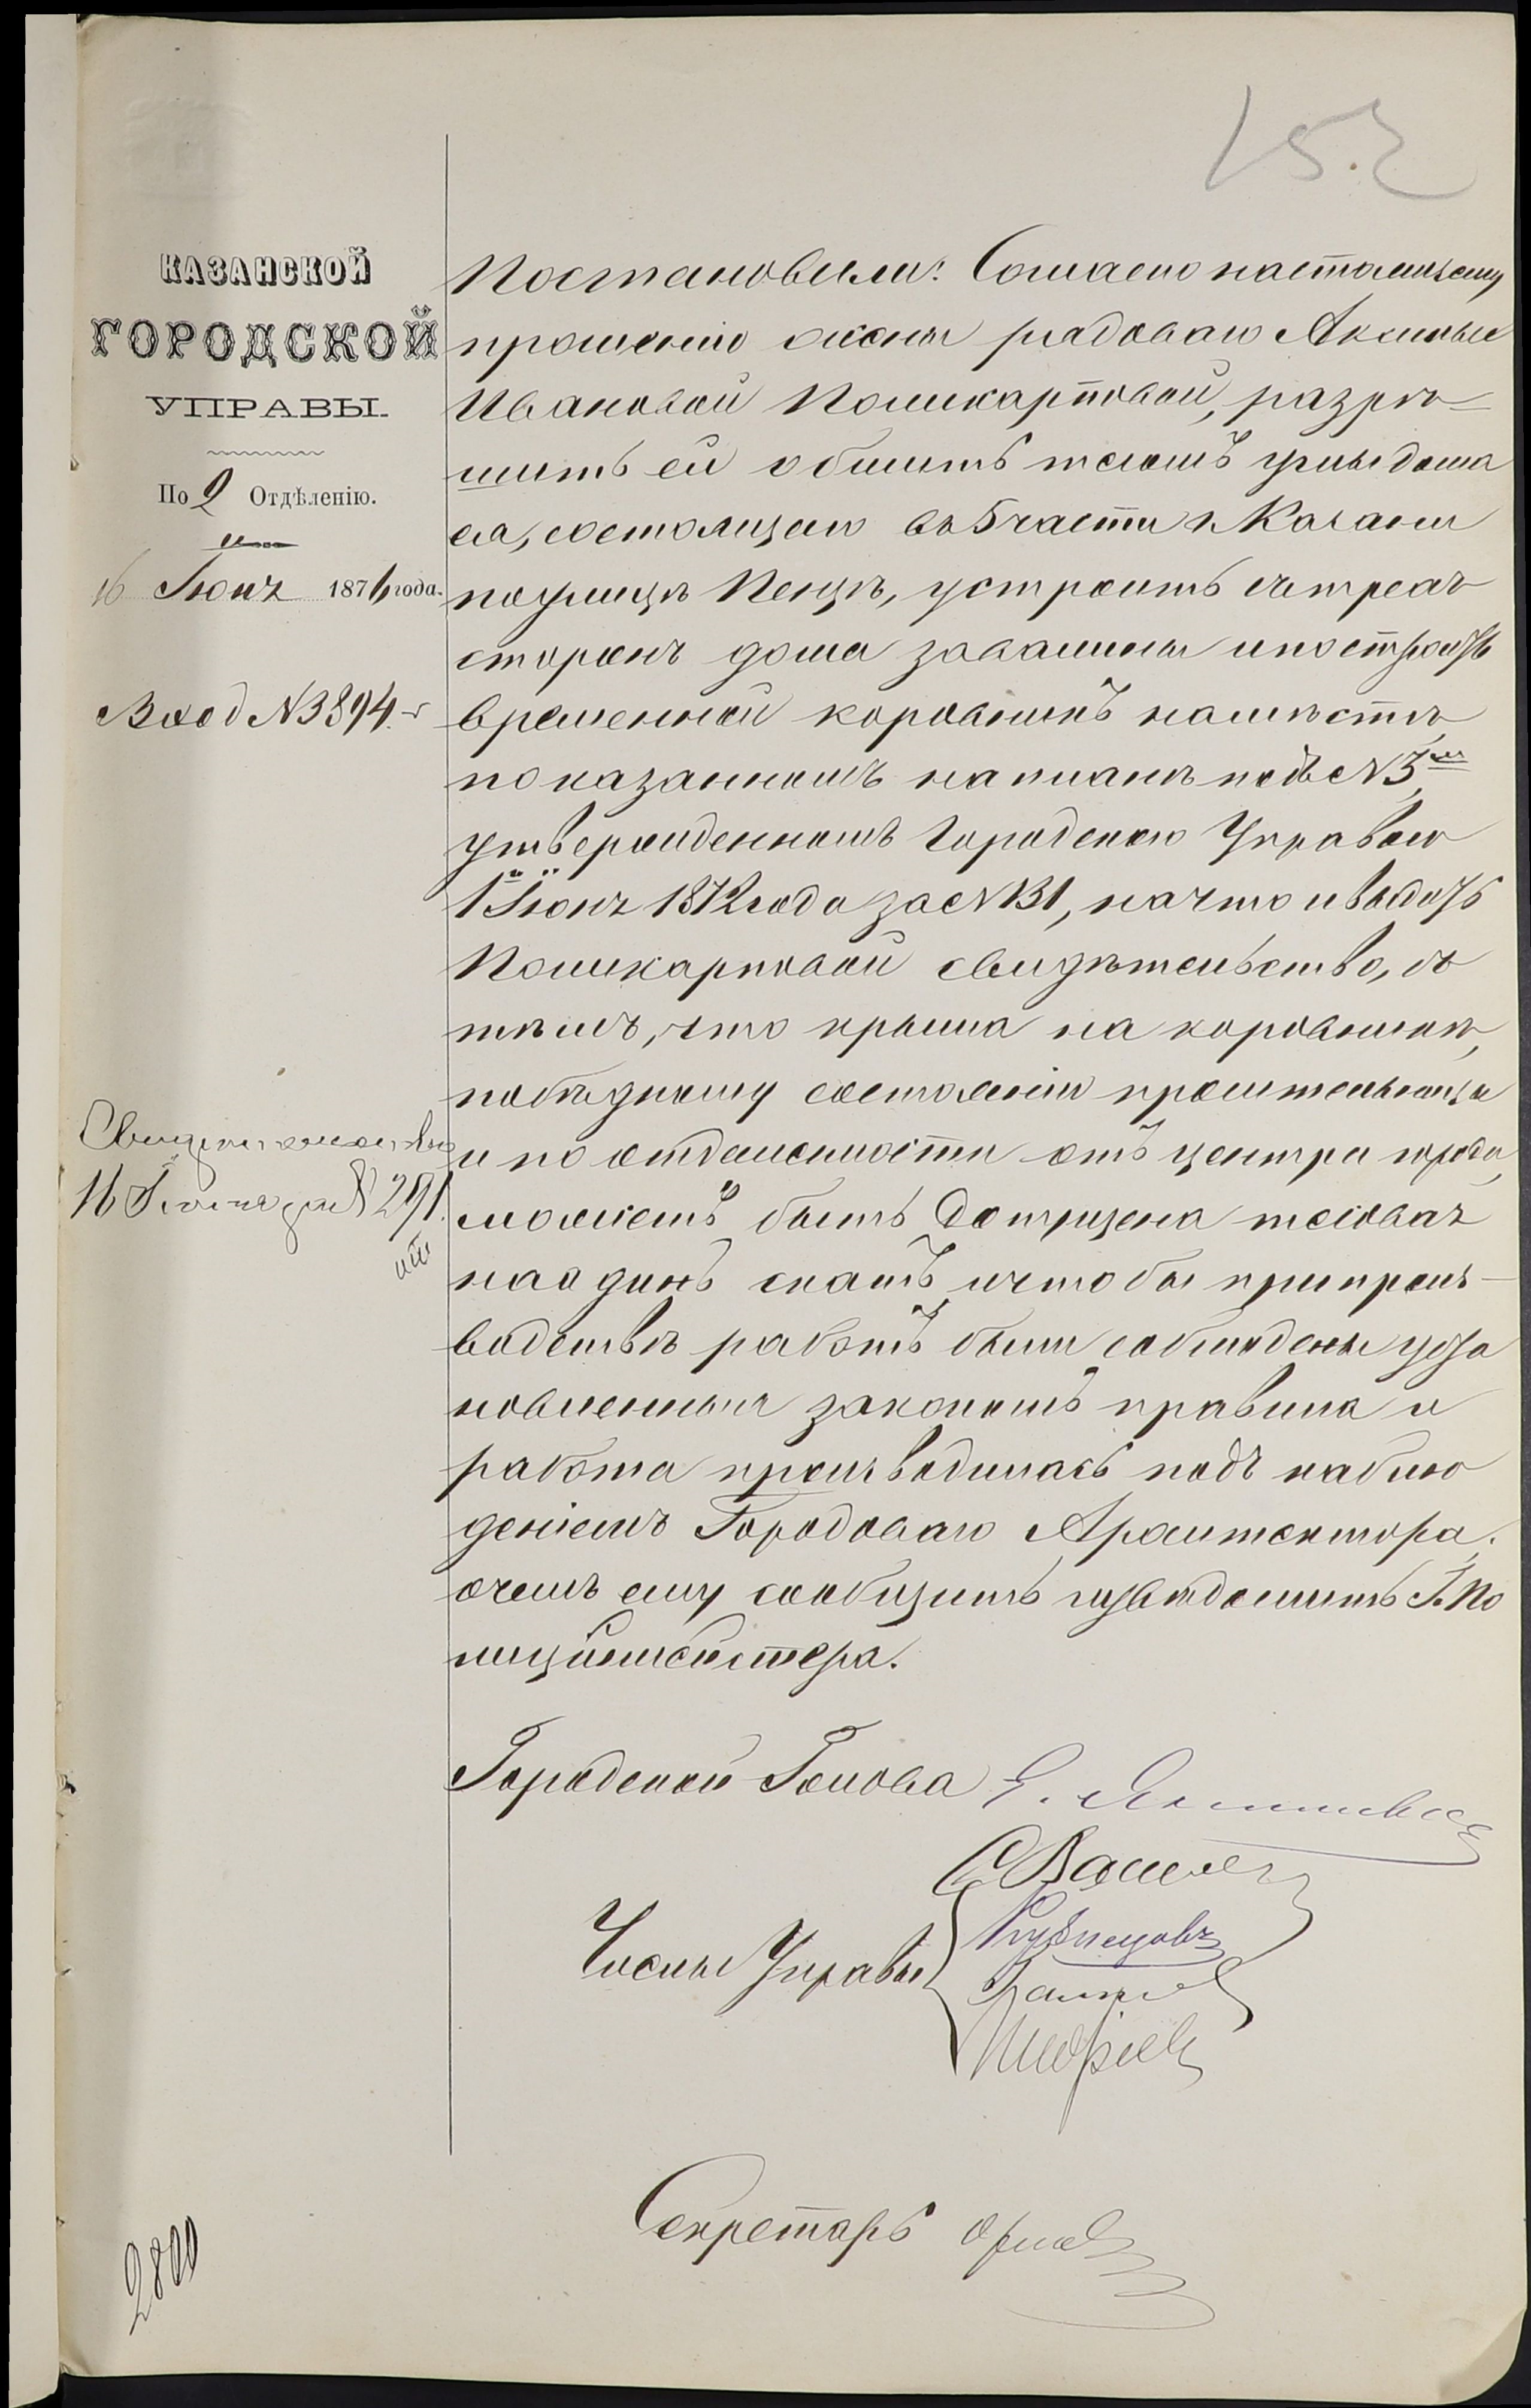 152
КАЗАНСКОЙ
ГОРОДСКОЙ
УПРАВЫ.
По 2 Отдѣленію.
16 Іюня 1876 года.
Вход №3894.
Свидѣтельство
16 Іюня за №291.
2800
Постановили: Согласно настоящему
прошенію жены рядоваго Аксиньи
Ивановой Поликарповой, разрѣ-
шить ей обшить тесомъ углы дома
ея, состоящаго въ 5 части г. Казани
по улицѣ Пецѣ, устроить съ трехъ
сторонъ дома завалины и построить
временной коровникъ на мѣстѣ,
показанномъ на планѣ подъ №5мъ,
утвержденномъ Городскою Управою
1го Іюня 1872 года за №131, на что и выдать
Поликарповой свидѣтельство, съ
тѣмъ, что крыша на коровникѣ,
по бѣдному состоянію просительницы
и по отдаленности отъ центра города,
можетъ быть допущена тесовая
на одинъ скатъ, и чтобы при произ-
водствѣ работъ были соблюдены уста
новленныя закономъ правила и
работа производилась подъ наблю
деніемъ Городоваго Архитектора,
о чемъ ему сообщить и увѣдомить Г. По
лиціймейстера.
Городской Голова Э. Янишевскій
Члены Управы
Кузнецовъ
Секретарь